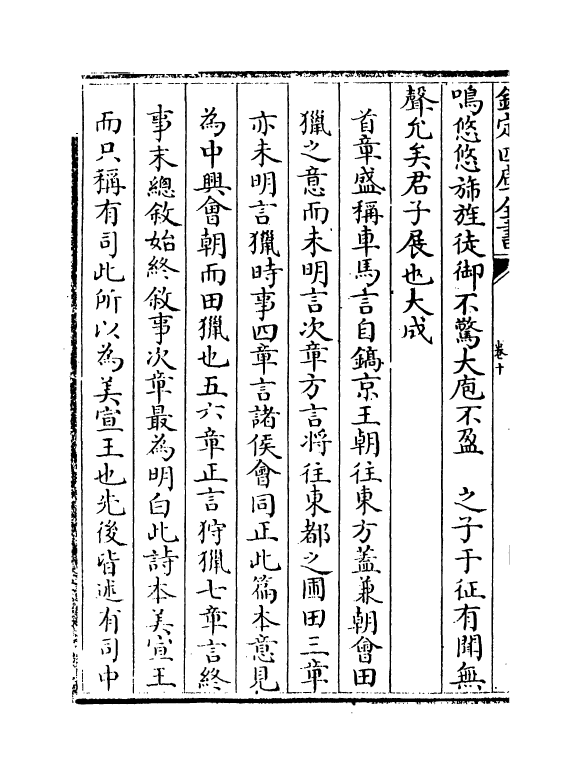 欽定四庫全書
卷十
鳴悠悠旆旌徒御不驚大庖不盈　之子于征有聞無
聲允矣君子展也大成
首章盛稱車馬言自鎬京王朝往東方蓋兼朝會田
獵之意而未明言次章方言將往東都之圃田三章
亦未明言獵時事四章言諸侯會同正此篇本意見
為中興會朝而田獵也五六章正言狩獵七章言終
事末總敘始終敘事次章最為明白此詩本美宣王
而只稱有司此所以為美宣王也先後皆述有司中